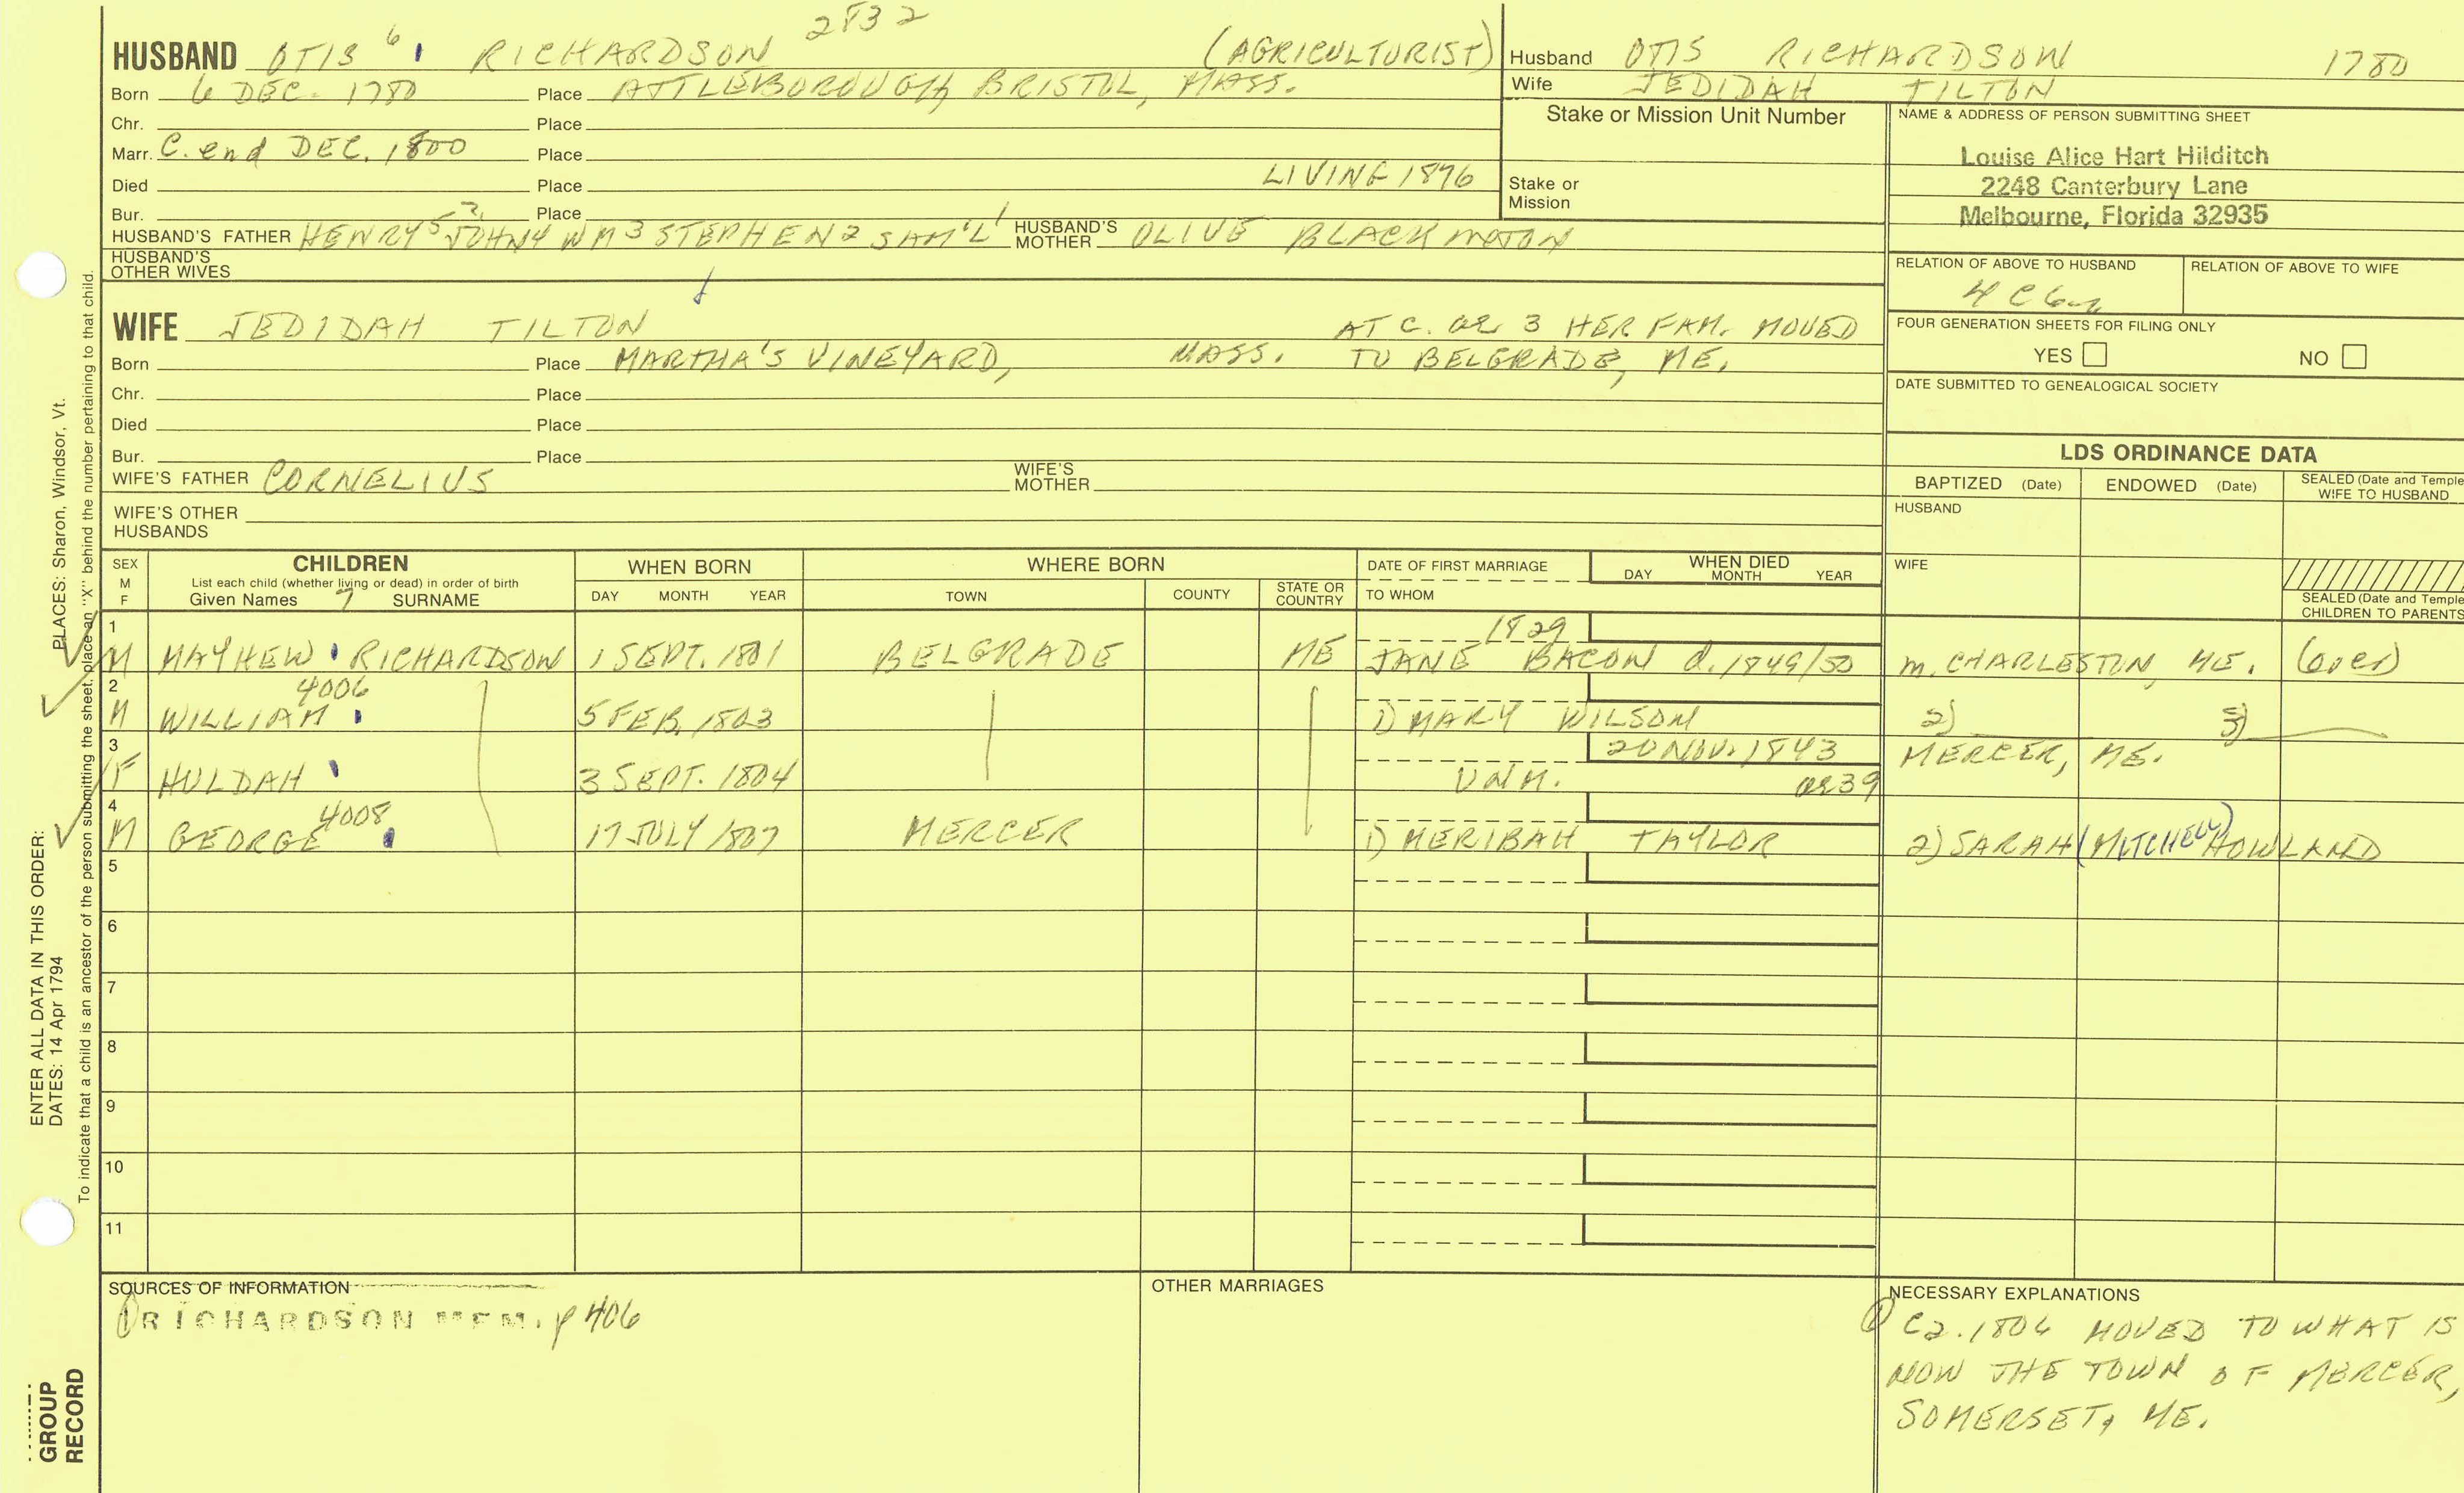 2832
HUSBAND OTIS 6 RICHARDSON (AGRICULTURIST)
Born 6 DEC. 1780 Place ATTLEBOROUGH, BRISTOL, MASS.
Chr. Place
Marr. C. end DEC. 1800 Place
LIVING 1876
Died Place
Bur. Place
HUSBAND'S FATHER HENRY 5 JOHN 4 WM 3 STEPHEN 2 SAM'L 1 HUSBAND'S MOTHER OLIVE BLACKINTON
HUSBAND'S OTHER WIVES
Husband OTIS RICHARDSON 1780
Wife JEDIDAH TILTON
Stake or Mission Unit Number
Stake or Mission
NAME & ADDRESS OF PERSON SUBMITTING SHEET
Louise Alice Hart Hilditch
2248 Canterbury Lane
Melbourne, Florida 32935
RELATION OF ABOVE TO HUSBAND
RELATION OF ABOVE TO WIFE
4 C
FOUR GENERATION SHEETS FOR FILING ONLY
YES NO
DATE SUBMITTED TO GENEALOGICAL SOCIETY
WIFE JEDIDAH TILTON AT C. AE 3 HER FAM. MOVED
Born Place MARTHA'S VINEYARD, MASS. TO BELGRADE, ME.
Chr. Place
Died Place
Bur. Place
WIFE'S FATHER CORNELIUS WIFE'S MOTHER
WIFE'S OTHER HUSBANDS
LDS ORDINANCE DATA
BAPTIZED (Date) ENDOWED (Date) SEALED (Date and Temple
WIFE TO HUSBAND
HUSBAND
WIFE
SEALED (Date and Temple
CHILDREN TO PARENTS
SEX M F
CHILDREN
List each child (whether living or dead) in order of birth
Given Names 7 SURNAME
WHEN BORN
DAY MONTH YEAR
WHERE BORN
TOWN COUNTY STATE OR COUNTRY
DATE OF FIRST MARRIAGE
TO WHOM
WHEN DIED
DAY MONTH YEAR
1 1829
M MAYHEW RICHARDSON 1 SEPT. 1801 BELGRADE ME JANE BACON d. 1849/50 m. CHARLESTON, ME. (over)
2 4006
M WILLIAM 5 FEB. 1803 1) MARY WILSON 2) 3)
3 20 NOV. 1843 MERCER, ME.
F HULDAH 3 SEPT. 1804 UNM. AE 39
4 4008
M GEORGE 17 JULY 1807 MERCER 1) MERIBAH TAYLOR 2) SARAH (MITCHELL) HOWLAND
5
6
7
8
9
10
11
SOURCES OF INFORMATION
① RICHARDSON MEM. p 406
OTHER MARRIAGES
NECESSARY EXPLANATIONS
① Ca. 1806 MOVED TO WHAT IS
NOW THE TOWN OF MERCER,
SOMERSET, ME.
ENTER ALL DATA IN THIS ORDER:
DATES: 14 Apr 1794
PLACES: Sharon, Windsor, Vt.
To indicate that a child is an ancestor of the person submitting the sheet, place an "X" behind the number pertaining to that child.
GROUP
RECORD